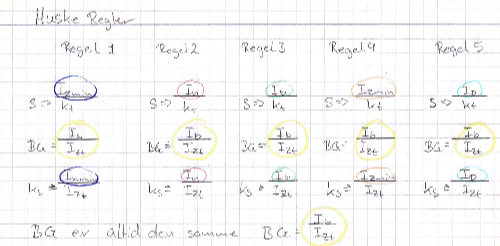 Huske Regler
Regel 1 Regel 2 Regel 3 Regel 4 Regel 5
S => Izmin/kt S => In/ks S => Ib/kt S => Izmin/kt S => Ib/kt
BG = Ib/Izt BG = Ib/Izt BG = Ib/Izt BG = Ib/Izt BG = Ib/Izt
ks = Izmin/Izt ks = In/Izt ks = Ib/Izt ks = Izmin/Izt ks = Ib/Izt
BG er altid den samme BG = Ib/Izt